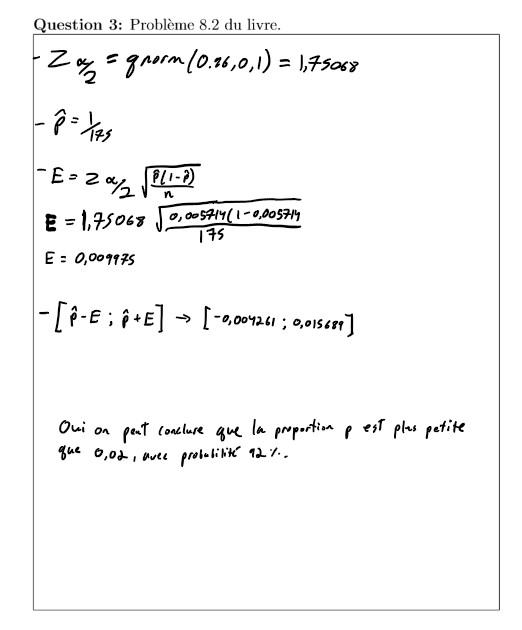 Question 3: Problème 8.2 du livre.
- Z α/2 = qnorm(0.96,0,1) = 1,75068
- p̂ = 1/175
- E = Z α/2 √(p̂(1-p̂)/n)
E = 1,75068 √(0,005714(1-0,005714/175
E = 0,009975
- [p̂-E ; p̂+E] → [-0,004261 ; 0,015689]
Oui on peut conclure que la proportion p est plus petite
que 0,02, avec probabilité 92%.